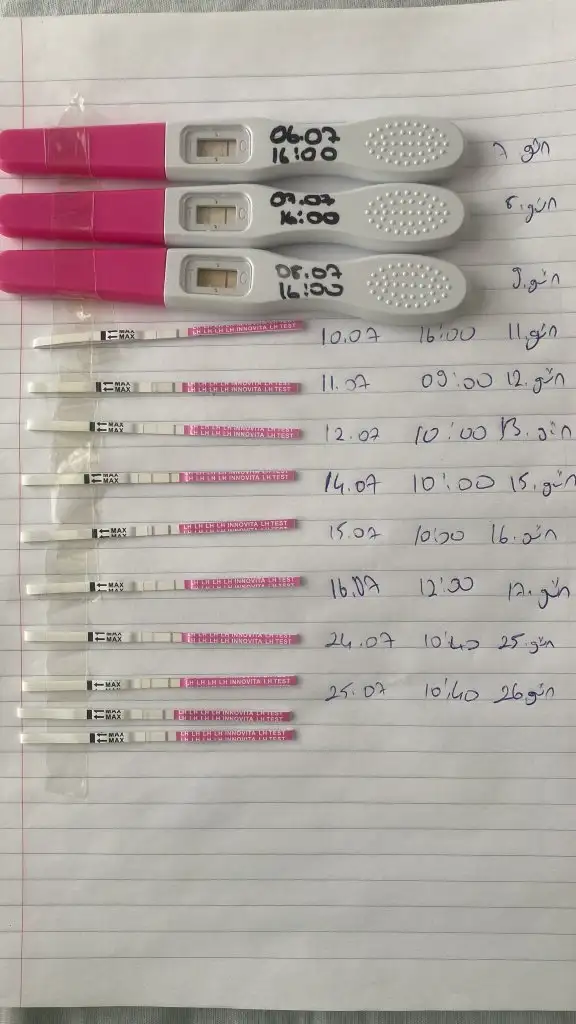 06.07
16:00
7 gün
07.07
16:00
8.gün
08.07
16:00
9.gün
MAX
MAX
LH LH LH INNOVITA LH TEST
10.07 16:00 11.gün
MAX
MAX
LH LH LH LH INNOVITA LH TEST
11.07 09:00 12.gün
MAX
MAX
LH LH LH LH INNOVITA LH TEST
12.07 10:00 13.gün
MAX
MAX
LH LH LH LH INNOVITA LH TEST
14.07 10:00 15.gün
MAX
MAX
LH LH LH LH INNOVITA LH TEST
15.07 10:00 16.gün
MAX
MAX
LH LH LH LH INNOVITA LH TEST
16.07 12:30 17.gün
MAX
MAX
LH LH LH LH INNOVITA LH TEST
24.07 10:40 25.gün
MAX
MAX
LH LH LH LH INNOVITA LH TEST
25.07 10:40 26gün
MAX
MAX
LH LH LH LH INNOVITA LH TEST
MAX
MAX
LH LH LH LH INNOVITA LH TEST